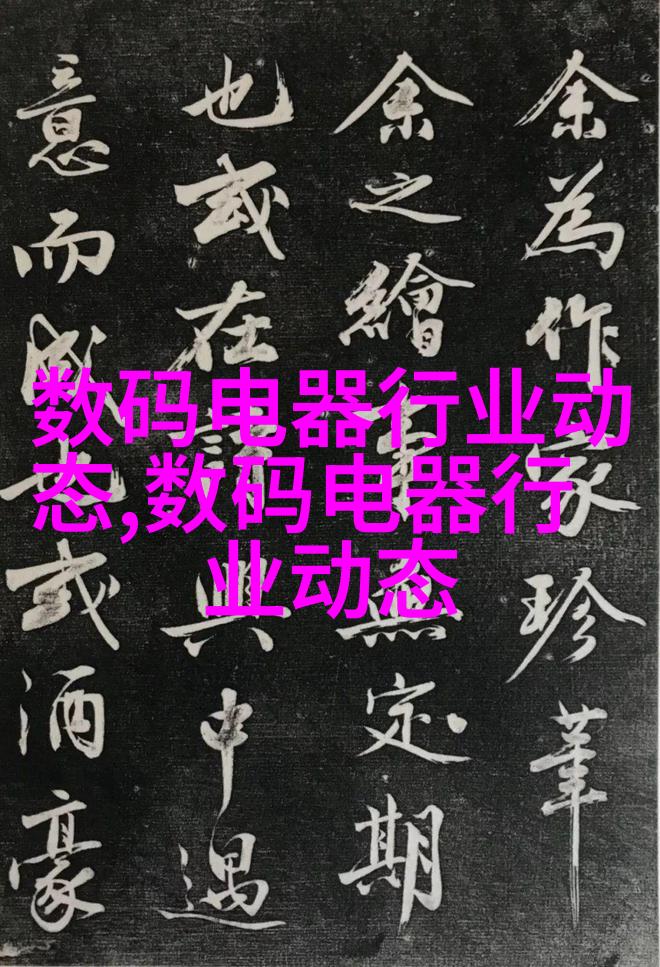 余為作家珍
余之繪事無定期
也或在詩興中遇
意而成也或酒豪
数码电器行业动
态,数码电器行
业动态